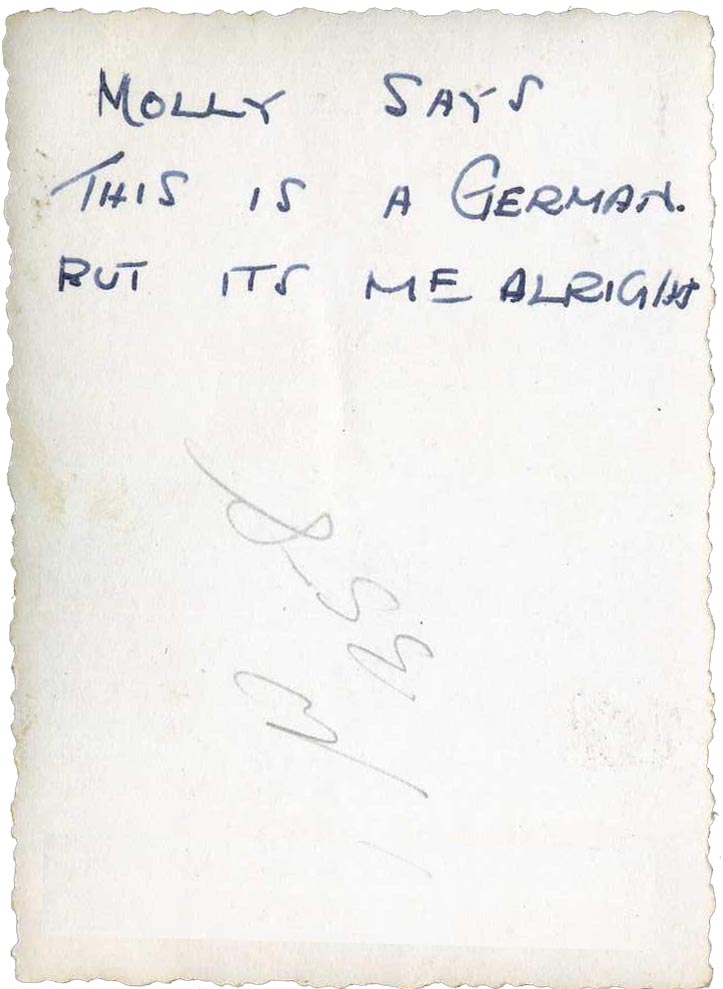 MOLLY SAYS
THIS IS A GERMAN.
BUT ITS ME ALRIGHT